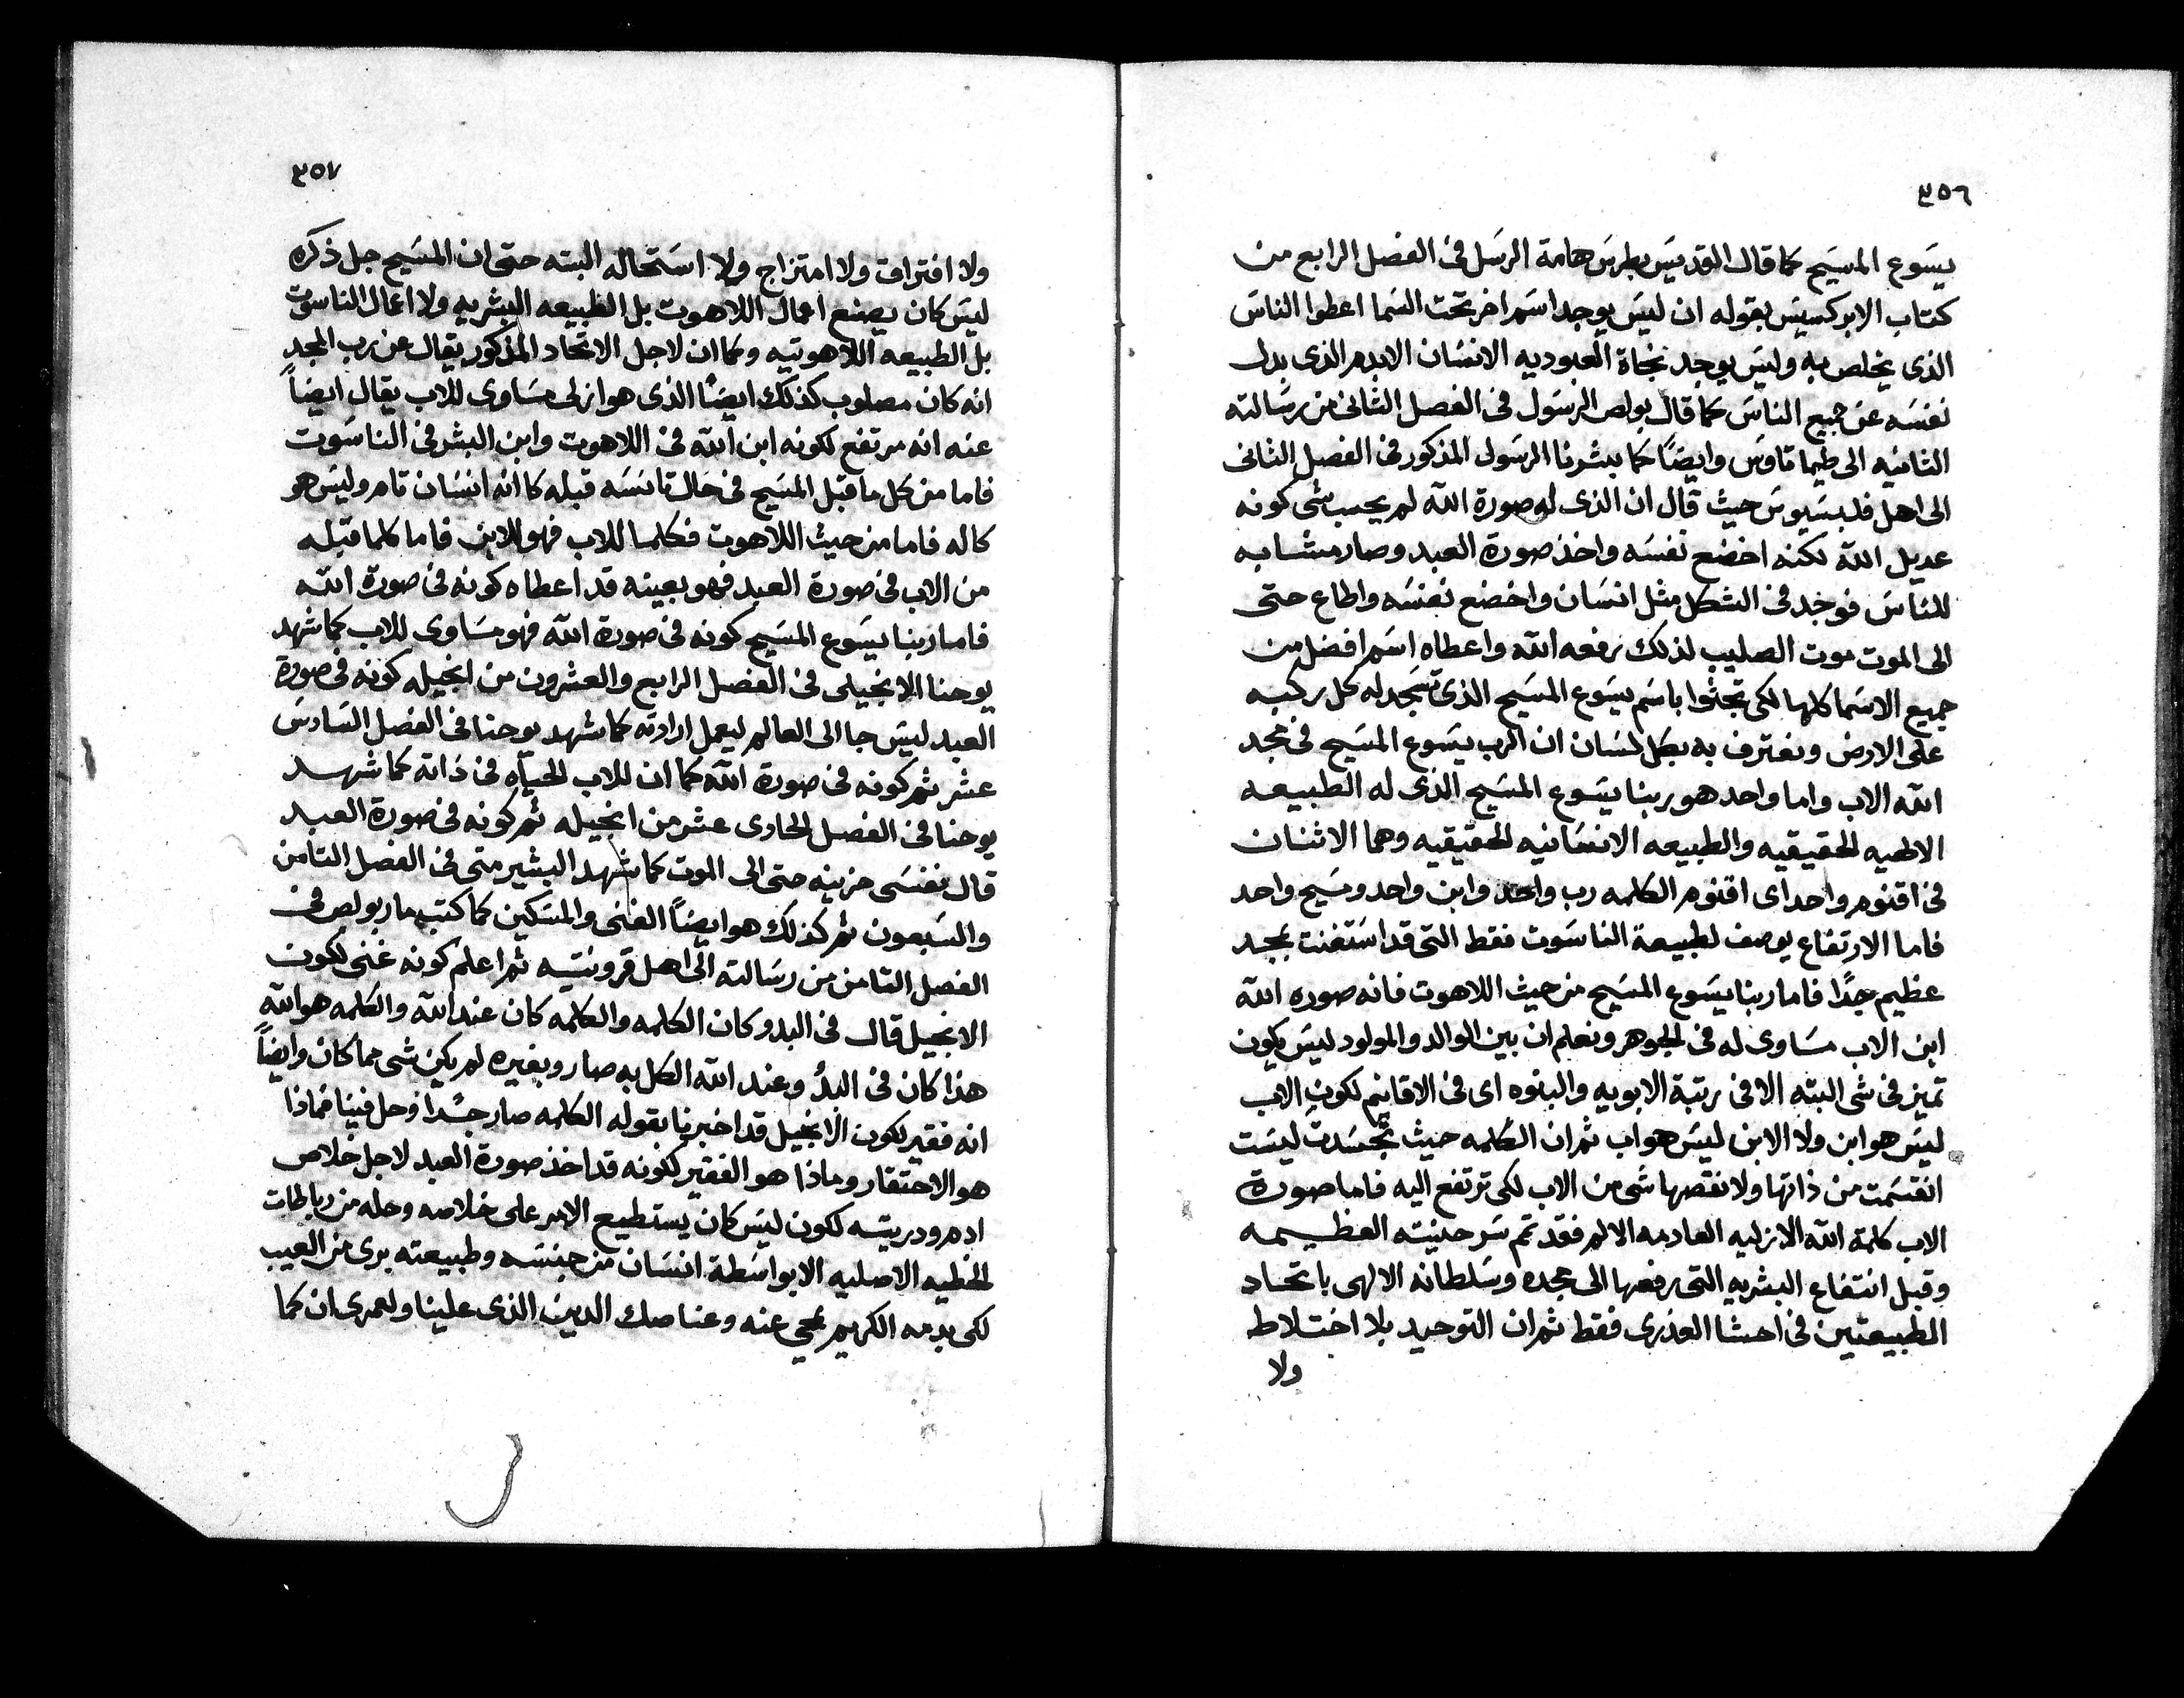 ٣٥٦
يسوع المسيح كما قال القديس بطرس هامة الرسل فى الفصل الرابع من
كتاب الابركسيس بقوله ان ليس يوجد اسم اخر تحت السما اعطوا الناس
الذى يخلص به وليس يوجد نجاة العبوديه الانسان الابدم الذى بدل
نفسه عن جميع الناس كما قال بولص الرسول فى الفصل الثانى من رسالته
الثانيه الى طيماتاوس وايضاً كما يبشرنا الرسول المذكور فى الفصل الثانى
الى اهل فلبسيوس حيث قال ان الذى له صورة الله لم يحسب شى كونه
عديل الله لكنه اخضع نفسه واخذ صورة العبد وصار مشابه
للناس فوجد فى الشكل مثل انسان واخضع نفسه واطاع حتى
الى الموت موت الصليب لذلك رفعه الله واعطاه اسم افضل من
جميع الاسما كلها لكى تجثوا باسم يسوع المسيح الذى تسجد له كل ركبه
على الارض ونعترف به بكل لسان ان الرب يسوع المسيح فى مجد
الله الاب واما واحد هو ربنا يسوع المسيح الذى له الطبيعه
الالهيه الحقيقيه والطبيعه الانسانيه الحقيقيه وهما الاثنان
فى اقنوم واحد اى اقنوم الكلمه رب واحد وابن واحد ومسيح واحد
فاما الارتفاع يوصف لطبيعة الناسوت فقط التى قد استغنت بمجد
عظيم جدًا فاما ربنا يسوع المسيح من حيث اللاهوت فانه صوره الله
ابن الاب مساوى له فى الجوهر ونعلم ان بين الوالد والمولود ليس يكون
تميز فى شى البته الا فى رتبة الابويه والبنوه اى فى الاقانيم لكون الاب
ليس هو ابن ولا الابن ليس هو اب ثم ان الكلمه حيث تجسدت ليست
انقسمت من ذاتها ولا نقصها شى من الاب لكى ترتفع اليه فاما صورة
الاب كلمة الله الازليه العادمه الالم فقد تم سر حنيته العظيمه
وقبل انتفاع البشريه التى رفعها الى مجده وسلطانه الالهى باتحاد
الطبيعتين فى احشا العذرى فقط ثم ان التوحيد بلا اختلاط
ولا
٣٥٧
ولا افتراق ولا امتزاج ولا استحاله البته حتى ان المسيح جل ذكره
ليس كان يصنع اعمال اللاهوت بل الطبيعه البشريه ولا اعمال الناسوت
بل الطبيعه اللاهوتيه وكما ان لاجل الاتحاد المذكور يقال عن رب المجد
انه كان مصلوب كذلك ايضًا الذى هو ازلى مساوى للاب يقال ايضاً
عنه انه مرتفع لكونه ابن الله فى اللاهوت وابن البشر فى الناسوت
فاما من كل ما قبل المسيح فى حال تانسه قبله كا انه انسان تام وليس هو
كاله فاما من حيث اللاهوت فكلما للاب فهو للابن فاما كلما قبله
من الاب فى صورة العبد فهو بعينه قد اعطاه كونه فى صورة الله
فاما ربنا يسوع المسيح كونه فى صورة الله فهو مساوى للاب كما شهد
يوحنا الانجيلى فى الفصل الرابع والعشرون من انجيله كونه فى صورة
العبد ليس جا الى العالم ليعمل ارادته كما شهد يوحنا فى الفصل السادس
عشر ثم كونه فى صورة الله كما ان للاب الحياه فى ذاته كما شهد
يوحنا فى الفصل الحادى عشر من انجيله ثم كونه فى صورة العبد
قال نفسى حزينه حتى الى الموت كما شهد البشير متى فى الفصل الثامن
والسبعون ثم كذلك هو ايضاً الغنى والمسكين كما كتب مار بولص فى
الفصل الثامن من رسالته الى اهل قرونتيه ثم اعلم كونه غنى لكون
الانجيل قال فى البدو كان الكلمه والكلمه كان عند الله والكلمه هو الله
هذا كان فى البدُ وعند الله الكل به صار وبغيره لم يكن شى مما كان وايضاً
انه فقير لكون الانجيل قد اخبرنا بقوله الكلمه صار جسُدا وحل فينا فماذا
هو الاحتقار وماذا هو الفقير لكونه قد اخذ صورة العبد لاجل خلاص
ادم ودريته لكون ليس كان يستطيع الامر على خلاصه وحله من رباطات
الخطيه الاصليه الا بواسطة انسان من جنسه وطبيعته برى من العيب
لكى بدمه الكريم يمحى عنه وعنا صك الدين الذى علينا ولعمرى ان كما